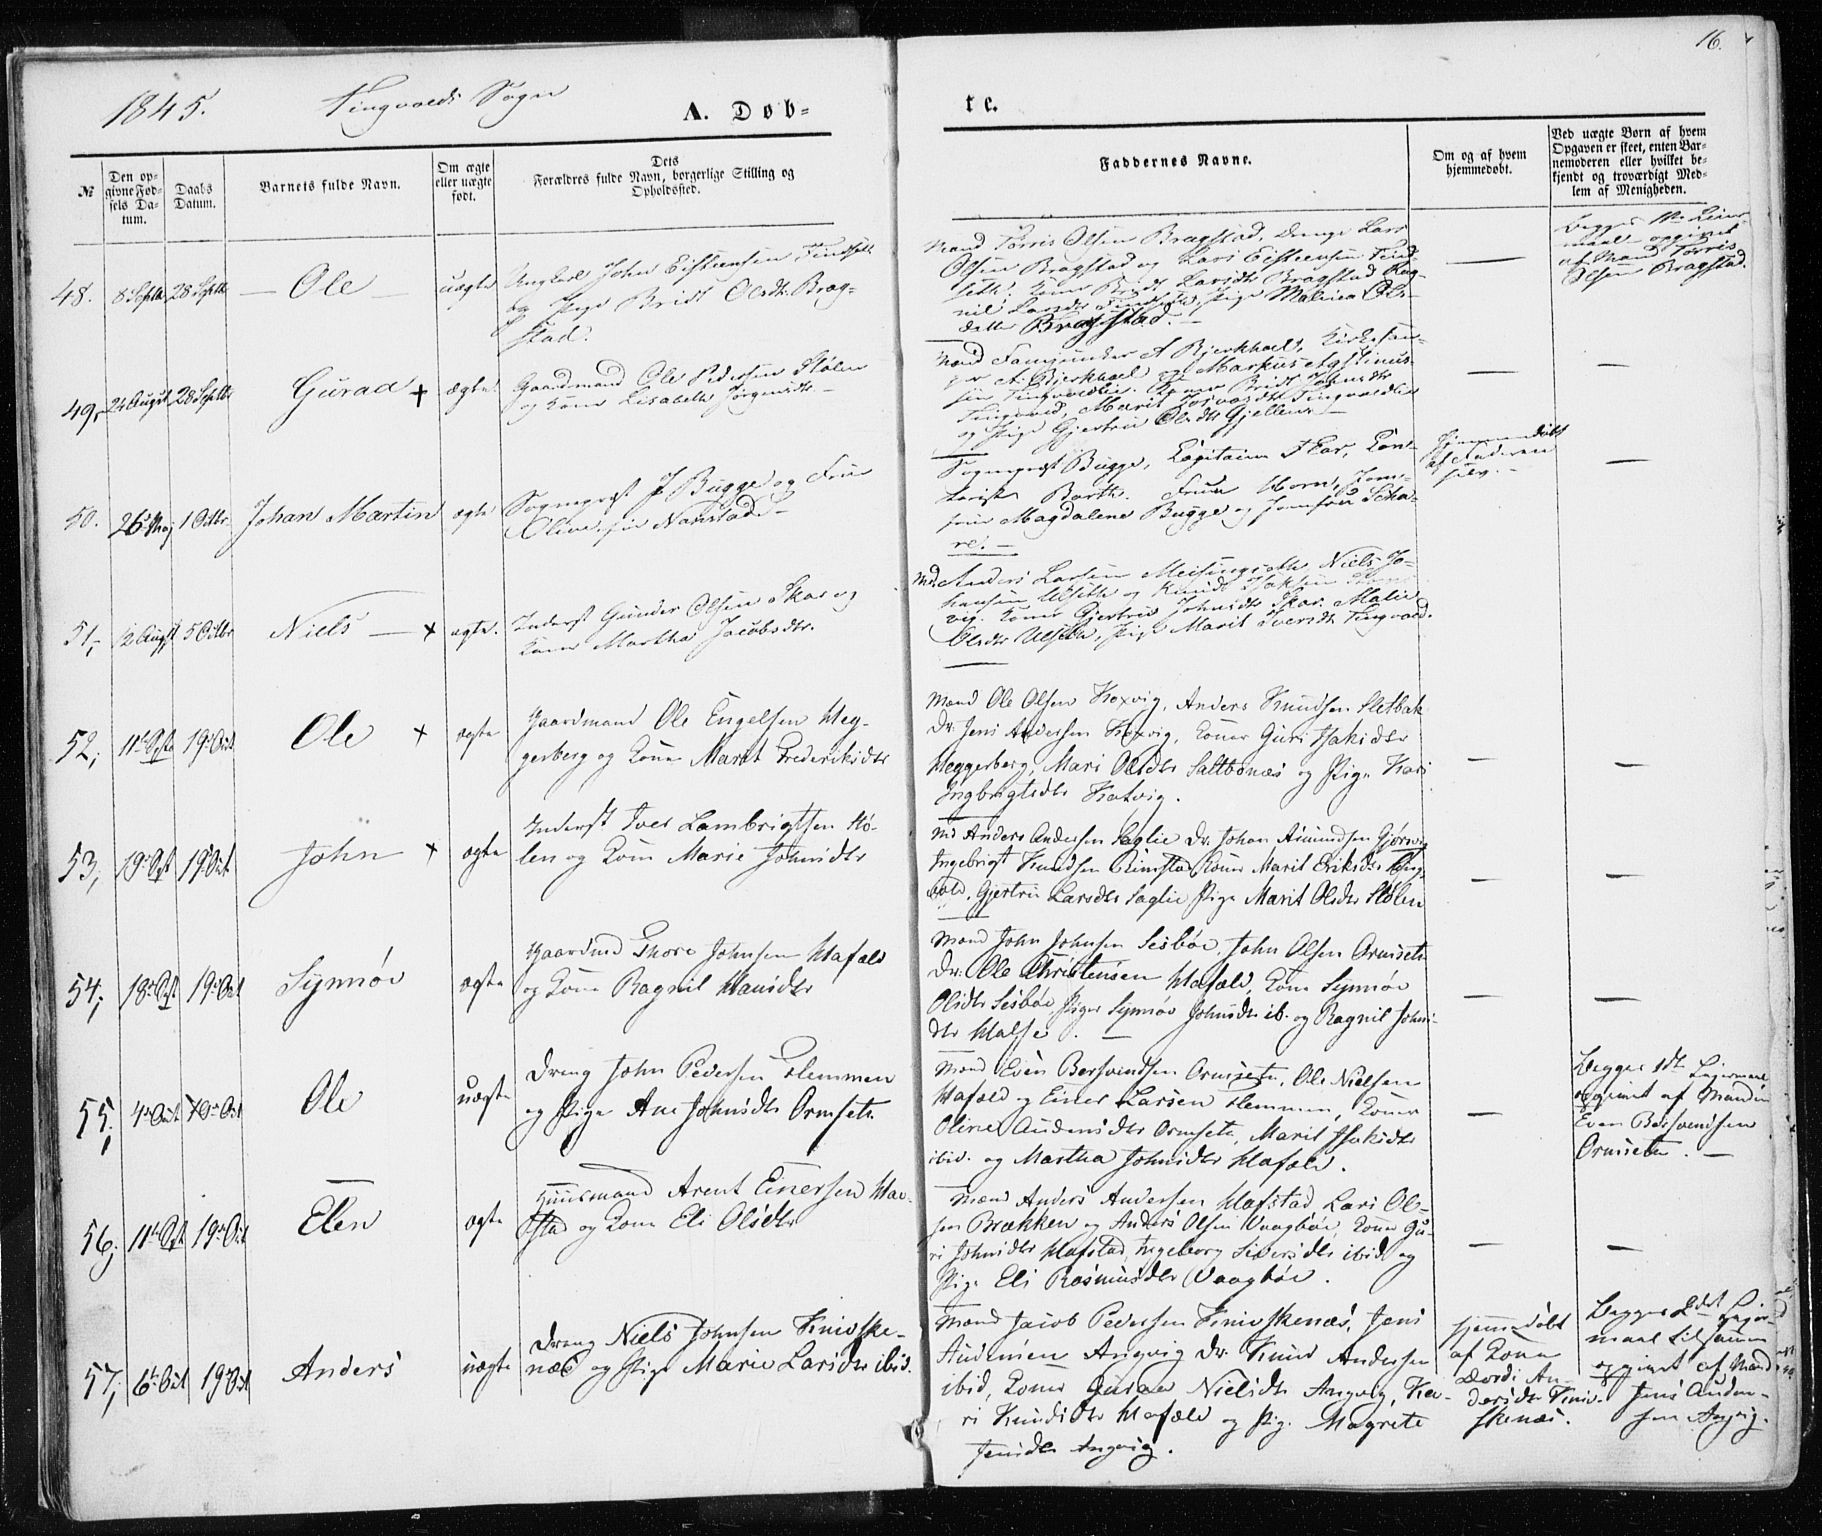 16.
1845. Tingvolds Sogn
A. Døb-
te.
№
Den op-
givne Fød-
sels Da-
tum.
Daabs
Datum.
Barnets fulde Navn.
Om ægte
eller uægte
født.
Dets
Forældres fulde Navn, borgerlige Stilling og
Opholdssted.
Faddernes Navne.
Om og af hvem
hjemmedøbt.
Ved uægte Børn af hvem
Opgaven er skeet, enten Bar-
nemoderen eller hvilket be-
kjendt og troværdigt Med-
lem af Menigheden.
48. 8 Septbr 28 Septbr — Ole — uægte
Ungkarl John Eistensen
og Pige Bridt Olsdtr Brag-
stad.
Mand Torris Olsen Bragstad, Drenge Lars
Olsen Bragstad og Lars Eistensen
Koner Bridt Larsdtr Bragstad Rag-
nil Larsdtr Pige Malena Ols-
datter Bragstad. —
—
Begges 1ste Leier-
maal opgivet
af Mand Torris
Olsen Bragstad.
49, 24 August 28 Septbr Gurad + ægte
Gaardmand Ole Pedersen Stølen
og Kone Lisabeth Jørgensdtr —
A Bjerkhoel, Kirkesan-
ger A. Bjerkhoel og Markus
Koner Bridt Johnsdtr
Tingvold, Marit
og Pige Gjertru Olsdtr Gjellen —
—
—
50. 26 Maj 1 Octbr Johan Martin ægte
Sogneprest J Bugge og Frue
Olive, Nanstad —
Sogneprest Bugge, Capitain Flor,
Barth. Frue Horn, Jom-
frue Magdalene Bugge og Jomfru Scha-
re. —
Hjemmedøbt
af Faderen
selv. —
—
51, 12 August 5 Octbr Niels — + ægte.
Inderst Gunder Olsen Skar og
Kone Martha Jacobsdtr.
Md. Anders Larsen Meisingseth, Niels Jo-
hansen Ulseth og Knud Isaksen
vig. Koner Gjertru Johnsdtr Skar. Malie
Olsdtr Ulseth, Pige Marit Iversdtr Tingvold.
52, 11te Sept 19de Oct Ole + ægte
Gaardmand Ole Engelsen Heg-
gerberg og Kone Marit Frederiksdtr
Mand Ole Olsen Koxvig, Anders Knudsen Sletbak
Dr. Jens Andersen Koxvig, Koner Guri Isaksdtr
Heggerberg, Mari Olsdtr Saltbonæs og Pige Kari
Ingbrigtsdtr Kotvig.
—
—
53, 19de Sept 19de Oct John + ægte
Inderst Iver Lambrigtsen Stø-
len og Kone Marie Johnsdtr
Md Anders Andersen Saglie Dr. Johan Asmundsen Gjørsvig
Ingebrigt Knudsen Rimstad Koner Marit Eriksdtr Ting-
vold, Gjertru Larsdtr Saglie, Pige Marit Olsdtr Stølen
—
—
54, 18de Sept 19de Oct Synnøv ægte
Gaardmd Thore Johnsen Hafæld
og Kone Ragnil Hansdtr
Mand John Johnsen Sesbøe, John Olsen Ormseth
Dr. Ole Christensen Hafæld, Kone Synnøv
Olsdtr Sesbøe, Piger Synnøv Johnsdtr ib. og Ragnil Johns-
dtr Halse. —
—
—
55, 4de Oct 19de Oct Ole uægte
Dreng John Pedersen Flemmen
og Pige Ane Johnsdtr Ormseth
Mand Even Bersvendsen Ormseth, Ole Nielsen
Hafæld og Einer Larsen Flemmen, Koner
Oline Audensdtr Ormseth, Marit Isaksdtr
ibid. og Martha Johnsdtr Hafæld.
—
Begges 1ste Leiermaal
opgivet af Manden
Even Bersvendsen
Ormseth. —
56, 11te Sept 19de Oct Elen ægte
Huusmand Arent Einersen Haf-
stad og Kone Eli Olsdtr
Mænd Anders Andersen Hafstad, Lars Ol-
sen Brækken og Anders Olsen Vaagbøe, Kone Gu-
ri Johnsdtr Hafstad, Ingeborg Siversdtr ibid og
Pige Eli Rasmusdtr Vaagbøe.
—
—
57, 6te Oct 19de Oct Anders uægte
Dreng Niels Johnsen Knivske-
næs og Pige Marie Larsdtr ibid.
Mand Jacob Pedersen Knivskenæs, Jens
Audensen Angvig Dr. Knud Andersen
ibid, Koner Gurae Nielsdtr Angvig, Ka-
ri Knudsdtr Hafæld og Pige Magrete
Jensdtr Angvig.
Hjemmedøbt
af Kone
Dordi An-
dersdtr Kniv-
skenæs.
Begges 2det Leier-
maal tilsammen
opgivet af Mand
Jens Auden-
sen Angvig.